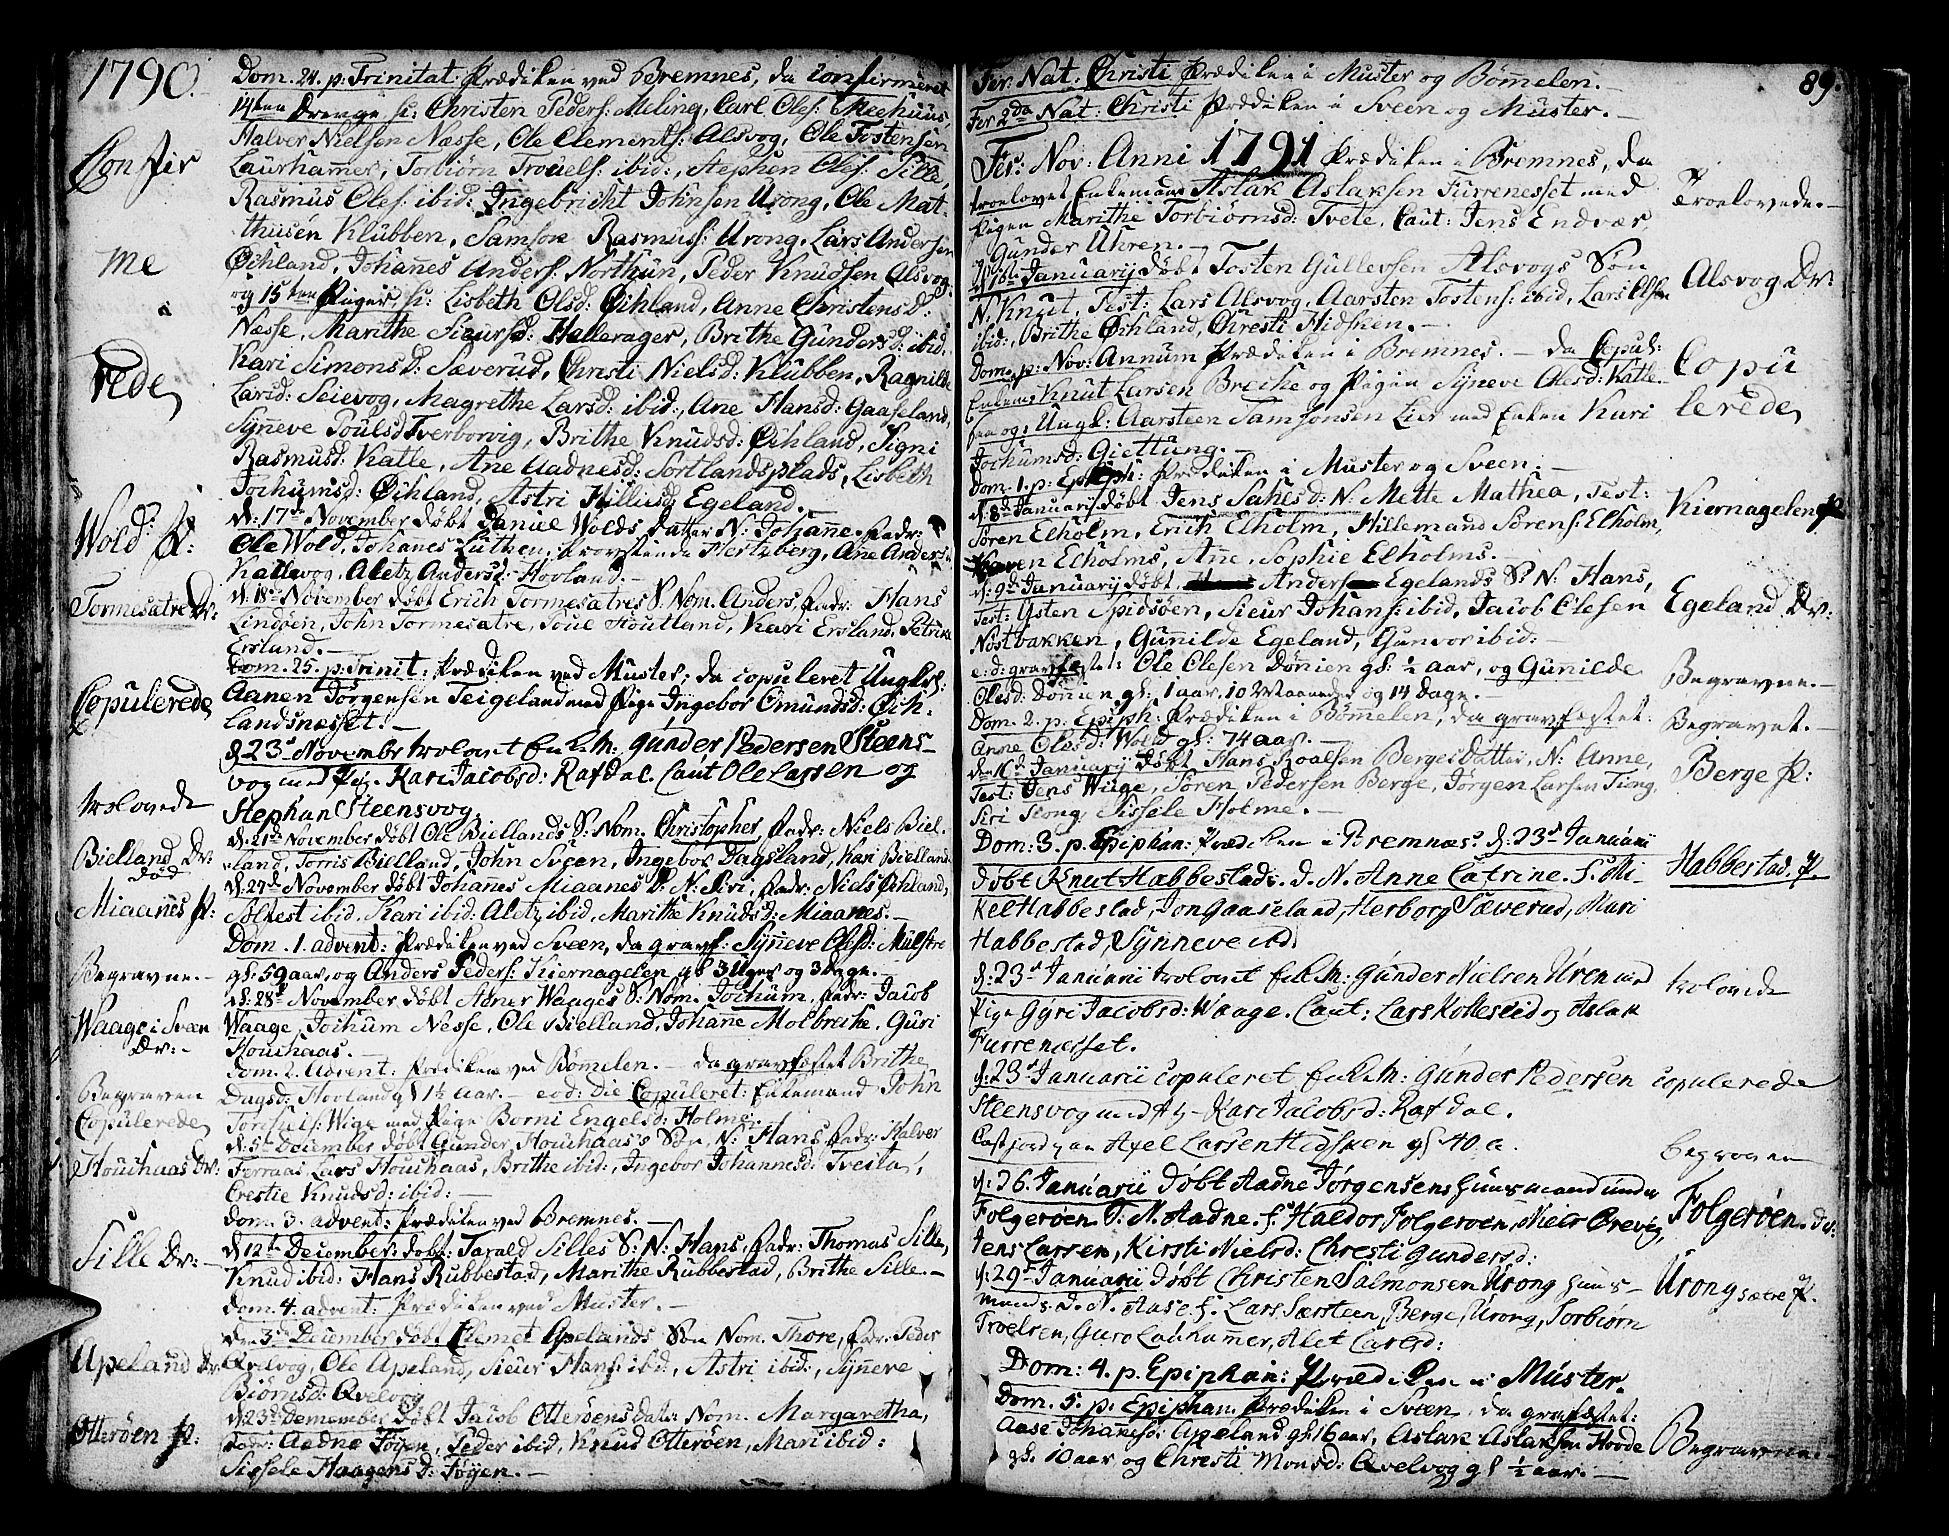 1790.
Dom. 24. p: Trinitat: Prædiken ved Bremnes, da confirmeret
14ten Drenge s: Christen Peders: Meling, Carl Oles:
Confir
Halver Nielsen Næsse, Ole Clements: Alsvog, Ole Tostensen
Laurhamer, Torbiørn Trouels: ibid:, Stephen Oles: Sille,
Rasmus Oles: ibid: Ingebricht Johnsen Urong, Ole Mat-
thusen Klubben, Samson Rasmuss: Urong, Lars Andersen
me
Øihland, Johanes Anders: Northun, Peder Knudsen Alsvog:
og 15ten Piger, s: Lisbeth Olsd: Øihland, Anne Christensd:
Næsse, Marithe Sieursd: Hallerager, Brithe Gundersd: ibid,
rede
Kari Simonsd: Sæverud, Christi Nielsd: Klubben, Ragnilde
Larsd: Seievog, Magrethe Larsd: ibid:, Ane Hansd: Gaaseland,
Syneve Poulsd Tverborvig, Brithe Knudsd: Øihland, Signi
Rasmusd: Katle, Ane Aadnesd: Sortlandsplads, Lisbeth
Jochumsd: Øihland, Astri Egeland.
Wold: P:
d: 17de November døbt Daniel Wolds datter N: Johane. Fadr:
Ole Wold, Johanes Luthen, Hertzberg, Ane Anders:
Kallevog, Aletz Andersd: Hovland.
Tormesætre Dr:
d: 18de November døbt Erich Tormesætres S. Nom. Anders, Fadr: Hans
Lindøen, John Tormesætre, Houtland, Kari Ersland, Petrine
Ersland.
Copulerede
Dom. 25. p: Trinit: Prædiken ved Muster, da copuleret Ungkl:
Aanen Jørgensen Teigeland med Pige Ingebor Omundsd: Øih-
landsnæsset.
d 23d November trolovet Enkem: Gunder Pedersen Steens-
vog med Pige Kari Jacobsd: Rafdal. Caut Ole Larsen og
trolovede
Stephan Steensvog.
Bielland Dr:
død
d: 21de November døbt Ole Biellands S: Nom. Christopher, Fadr: Niels Biel-
land, Torris Bielland, John Sveen, Ingebor Dagsland, Kari Bielland
Miaanes P:
d: 27de November døbt Johanes Miaanes D: N: Siri, Fadr: Niels Øihland,
ibid, Kari ibid: Aletz ibid, Marithe Knudsd: Miaanes.
Begravne.
Dom. 1. advent: Prædiken ved Sveen, da gravf: Syneve Olesd: Mulstre
gl: 59 aar, og Anders Peders: Kiernagelen gl 3 Uger og 3 Dage.
Waage i Sveen
Dr:
d: 28de November døbt Abner Waages S: Nom. Jochum, Fadr: Jacob
Waage, Jochum Nesse, Ole Bielland, Johane Molbreike, Guri
Houchaas.
Begraven
Copulerede
Dom. 2. Advent: Prædiken ved Bømelen. da gravfæstet Brithe
Dagsd: Hovland gl 1½ aar. eod: Die Copuleret: Enkemand John
Wige med Pige Borni Engelsd: Holme.
Houchaas Dr:
d: 5te December døbt Gunder Houchaas's Søn, N: Hans, Fadr: Halver
Forraas, Lars Houchaas, Brithe ibid:, Ingebor Johannesd: Tveita,
Crestie Knudsd: ibid:
Dom. 3. advent: Prædiken ved Bremnes.
Sille Dr:
d 12te December døbt Tarald Silles S: N: Hans, Fadr: Thomas Sille,
Knud ibid: Hans Rubbestad, Marithe Rubbestad, Brithe Sille.
Dom. 4. advent: Prædiken ved Muster.
Apeland Dr:
December døbt Clemet Apelands Søn Nom. Thore, Fadr: Peder
Qvelvog, Ole Apeland, Sieur Hans: ibid:, Astri ibid:, Syneve
Biørnsd: Qvelvog
Otterøen P:
d: 23de Demember døbt Jacob Otterøens datter Nom. Margaretha,
Fadr: Aadne Føyen, Peder ibid, Knud Otterøen, Mari ibid:
Sissele Haagensd: Føyen.
89.
Fer: Nat. Christi Prædiken i Muster og Bømelen.
Fer 2da Nat: Christi Prædiken i Sveen og Muster.
Fer: Nov: Anni 1791 Prædiken i Bremnes, da
Troelovede.
troelovet Enkemand Aslak Aslaksen Furrenesset med
Pigen Marithe Torbiørnsd: Tvete, Caut: Jens Endvær,
og Gunder Uhren.
Alsvog Dr:
Januarij døbt Tosten Gullevsen Alsvogs Søn
N. Knut, Test: Lars Alsvog, Aarsten Tostens: ibid, Lars Olsen
ibid:, Brithe Øihland, Christi Hidsken.
Copu
lerede
Dom. p: Nov: Annum Prædiken i Bremnes. da Copul:
Enkem: Knut Larsen Breike og Pigen Syneve Olesd: Katle-
og Ungk: Aarsteen Samsonsen Lier med Enken Kari
Jochumsd: Giettung.
Dom. 1. p. Epiph: Prædiken i Muster og Sveen.
Kiernagelen P
d 8de Januarij døbt Jens D: N: Mette Mathea, Test:
Søren Elholm, Erich Elholm, Hillemand Sørens: Elholm,
Karen Elholms, Ane Sophie Elholms.
Egeland Dr:
d: 9de Januarij døbt Anders Egelands S: N: Hans,
Test: Østen Spidsøen, Sieur Johans: ibid, Jacob Olesen
Nostbakken, Gunilde Egeland, Gunvor ibid:
Begravne.
e:d: gravfestet: Ole Olesen Dønien gl: ½ aar, og Gunilde
Olesd: Dønien gl: 1 aar, 10 Maaneder og 14 Dage.
Begravet.
Dom. 2. p. Epiph: Prædiken i Bømelen, da gravfestet:
Anne Olesd: Wold gl: 74 aar.
Berge P:
Januarij døbt Hans Roalsen Berges Datter, N: Anne,
Test: Jens Wiige, Søren Pedersen Berge, Jørgen Larsen Tiong,
Siri Tiong, Sissele Holme.
Habbestad. P.
Dom: 3. p. Epiphan: Prædiken i Bremnæs. d: 23d Januarii
døbt Knut Habbestads. D. N. Anne Catrine. f: Mi-
kel Habbestad, Jon Gaaseland, Herborg Sæverud, Mari
Habbestad, Synneve ibd.
trolovede
d: 23d Januarii trolovet Enkem: Gunder Nielsen Uren med
Pige Gyri Jacobsd: Waage. Caut: Lars Kolleseid og Aslak
Furrenæsset.
copulerede
d: 23d Januarii copuleret Enkem: Gunder Pedersen
Steensvog med Pige Kari Jacobsd: Rafdal.
begraven
Axel Larsen Hidsken gl 40 a.
Folgerøen. Dr:
d: 26. Januarii døbt Aadne Jørgensens Huusmand under
Folgerøen S: N. Aadne. f: Haldor Folgerøen, Niels Brevig,
Jens Larsen, Kirsti Nielsd: Christi Gundersd:
Urong sætre P.
d: 29d Januarii døbt Christen Salmonsen Urong huus-
mands D. N. Aase f. Lars Særsteen, Berge, Urong, Torbiørn
Troelsen, Guro Lauhamer, Alet Carlsd:
Dom: 4. p. Epiphan: Prædiken i Muster.
Begravne
Dom. 5. p. Epiphan. Prædiken i Sveen, da grafæstet:
Aase Johanesd: Apeland gl: 16 aar, Aslak Aslaksen Hovde
gl. 10 aar og Christi Monsd: Qvelvog gl ½ aar.